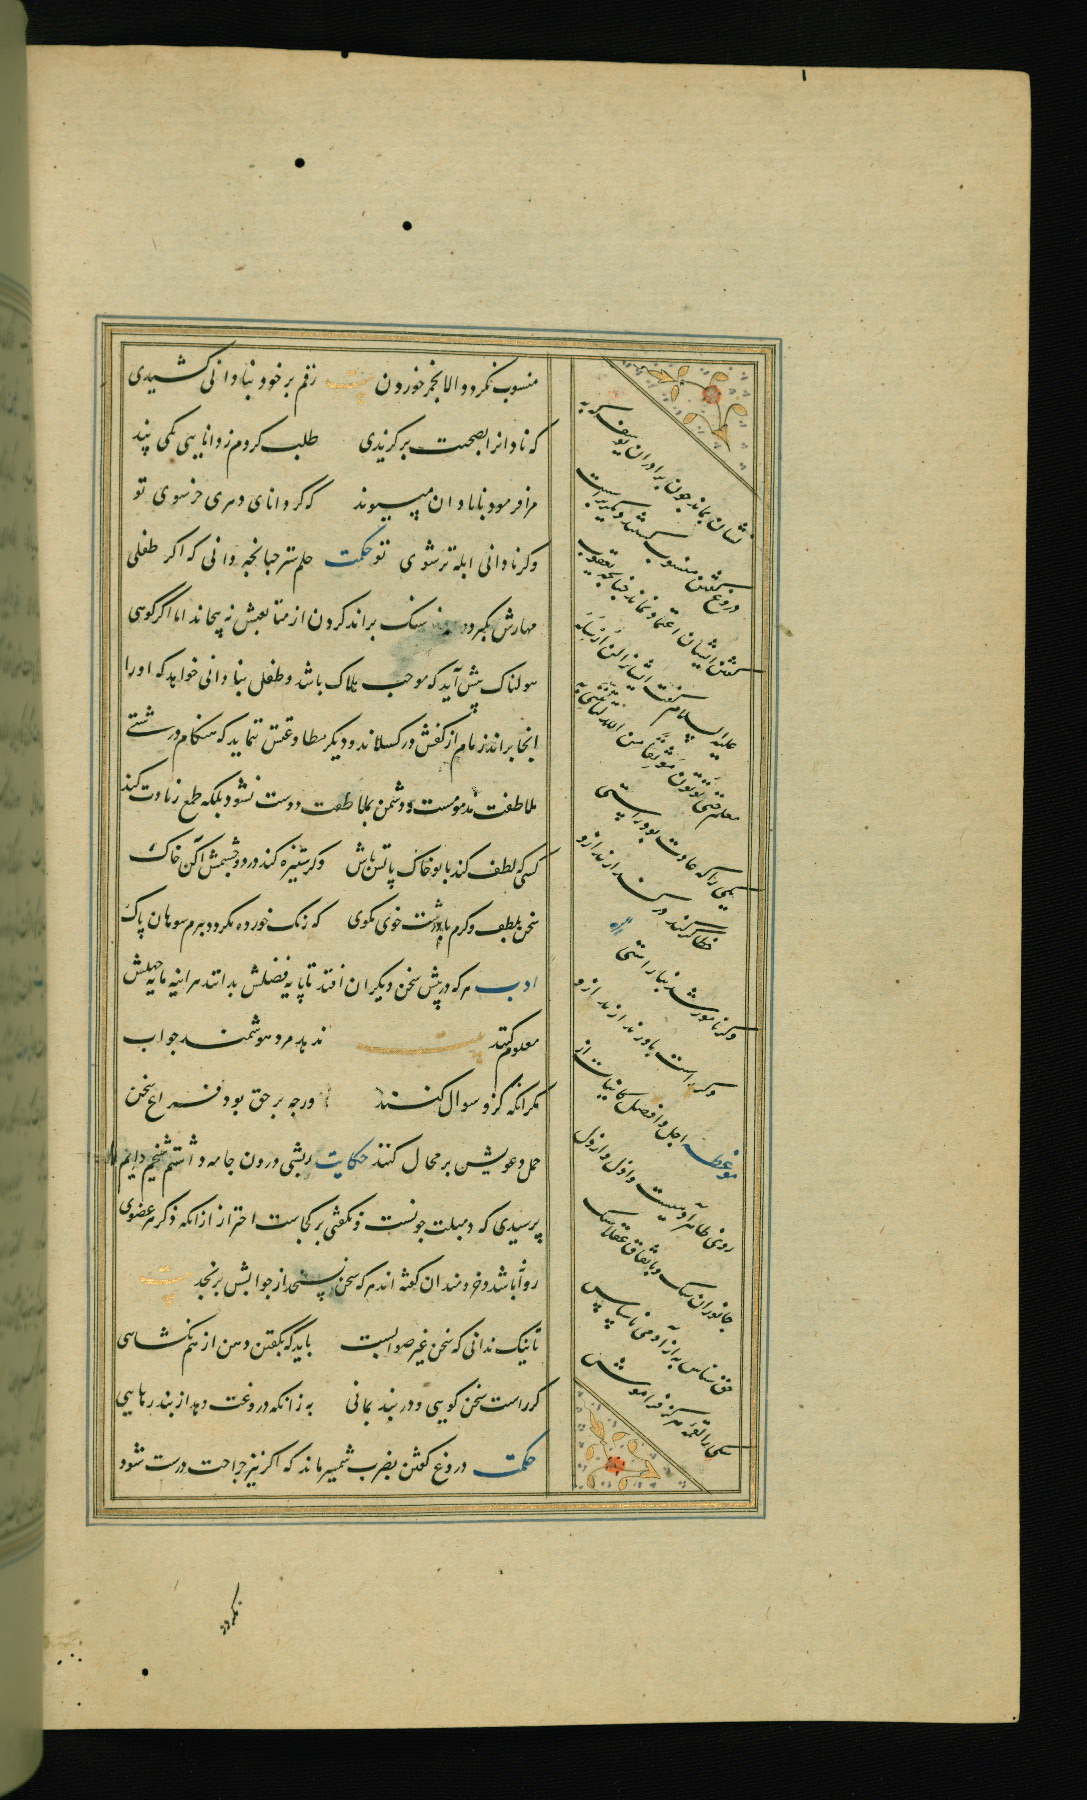 منسوب نکردد الا بخمر خوردن بیت رقم بر خود بنادانی کشیدی
که نادانرا بصحبت برگزیدی طلب کردم ز دانایی یکی پند
مرا فرمود با نادان مپیوند که گر دانای دهری خر شوی تو
وگر نادانی ابله تر شوی تو حکمت حلم شتر چنانچه دانی که اگر طفلی
مهارش بگیرد فرسنک براند گردن از متابعتش نه پیچاند اما اگر کوهی
هولناک پیش آید که موجب هلاک باشد و طفل بنادانی خواهد که او را
انجا براند زمام از کفش در گسلاند و دیگر مطاوعتش ننماید که هنگام درشتی
ملاطفت مذمومست و دشمن بملاطفت دوست نشود بلکه طمع زیادت کند
کسی که لطف کند با تو خاک پایش باش وگر ستیزه کند در دو چشمش آکن خاک
سخن بلطف و کرم با درشت خوی مگوی که زنگ خورده نگردد بنرم سوهان پاک
ادب هر که در پیش سخن دیگران افتد تا پایه فضلش بدانند هر اینه مایه جهلش
معلوم کنند بیت ندهد مرد هوشمند جواب
مگر انگه کزو سوال کنند ورچه بر حق بود فراخ سخن
حمل دعویش بر محال کنند حکایت ریشی درون جامه داشتم شیخم دایم
پرسیدی که دمبلت چونست و نگفتی بر کجاست احتراز از انکه ذکر هر عضوی
روا نباشد و خردمندان گفته اند هر که سخن نسنجد از جوابش برنجد بیت
تا نیک ندانی که سخن غیر صوابست باید که بگفتن دهن از هم نگشایی
گر راست سخن گویی و در بند بمانی به زانکه دروغت دهد از بند رهایی
حکمت دروغ گفتن بضرب شمشیر ماند که اگر نیز جراحت درست شود
نشان بماند چون برادران یوسف که به
دروغ گفتن منسوب گشتند و دیگر براست
گفتن ایشان اعتماد نماند چنانچه یعقوب
علیه السلام گفت ایشانرا لن ارسله
معکم حتی تؤتون موثقا من الله لتأتننی به
یکی را که عادت بود راستی
خطا گر کند در گذارند ازو
وگر نامور شد بناراستی
وگر راست باور ندارند ازو
موعظه اجل و افضل کاینات از
روی ظاهر آدمیست و اذل و ارذل
جانوران سک و باتفاق عقلا سک
حق شناس به از آدمی ناسپاس
سکی را لقمه هرگز فراموش
نگردد